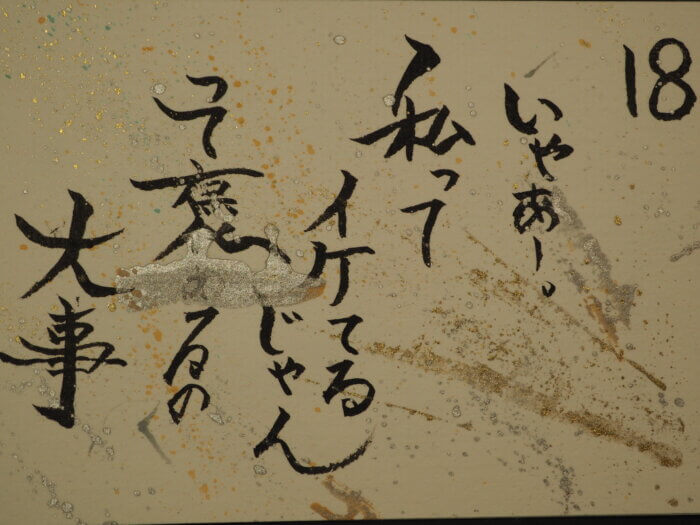 18
いやあー。
私って
イケてる
じゃん
って褒めるの
大事